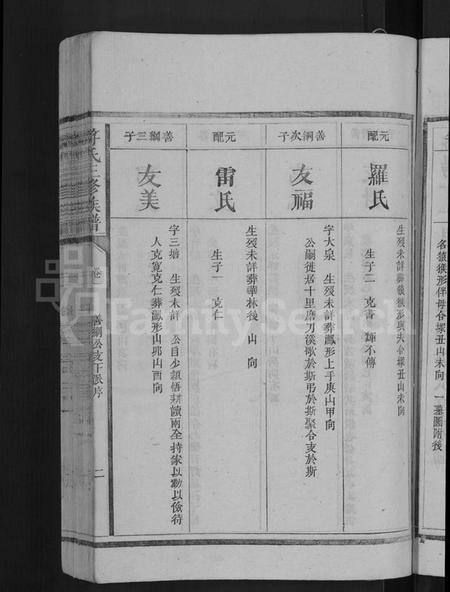 名猿猴形伴母合塚丑山未向 一墓圖附後
元配
羅氏
生歿未詳葬猿猴形與夫合塚丑山未向
生子二 克書 輝不傳
善綱次子
友福
字大泉 生歿未詳葬鳳形上手庚山甲向
公嗣徙居十里磨刀溪歌於斯弔於斯聚合支於斯
元配
雷氏
生歿未詳葬華林後 山 向
生子一 克仁
善綱三子
友美
字三塘 生歿未詳 公自少穎悟耕讀兩全持家以勤以儉待
人克寬克仁葬鳳形山邱山西向
許氏三修族譜
卷
善綱公支下派序
二
FamilySearch